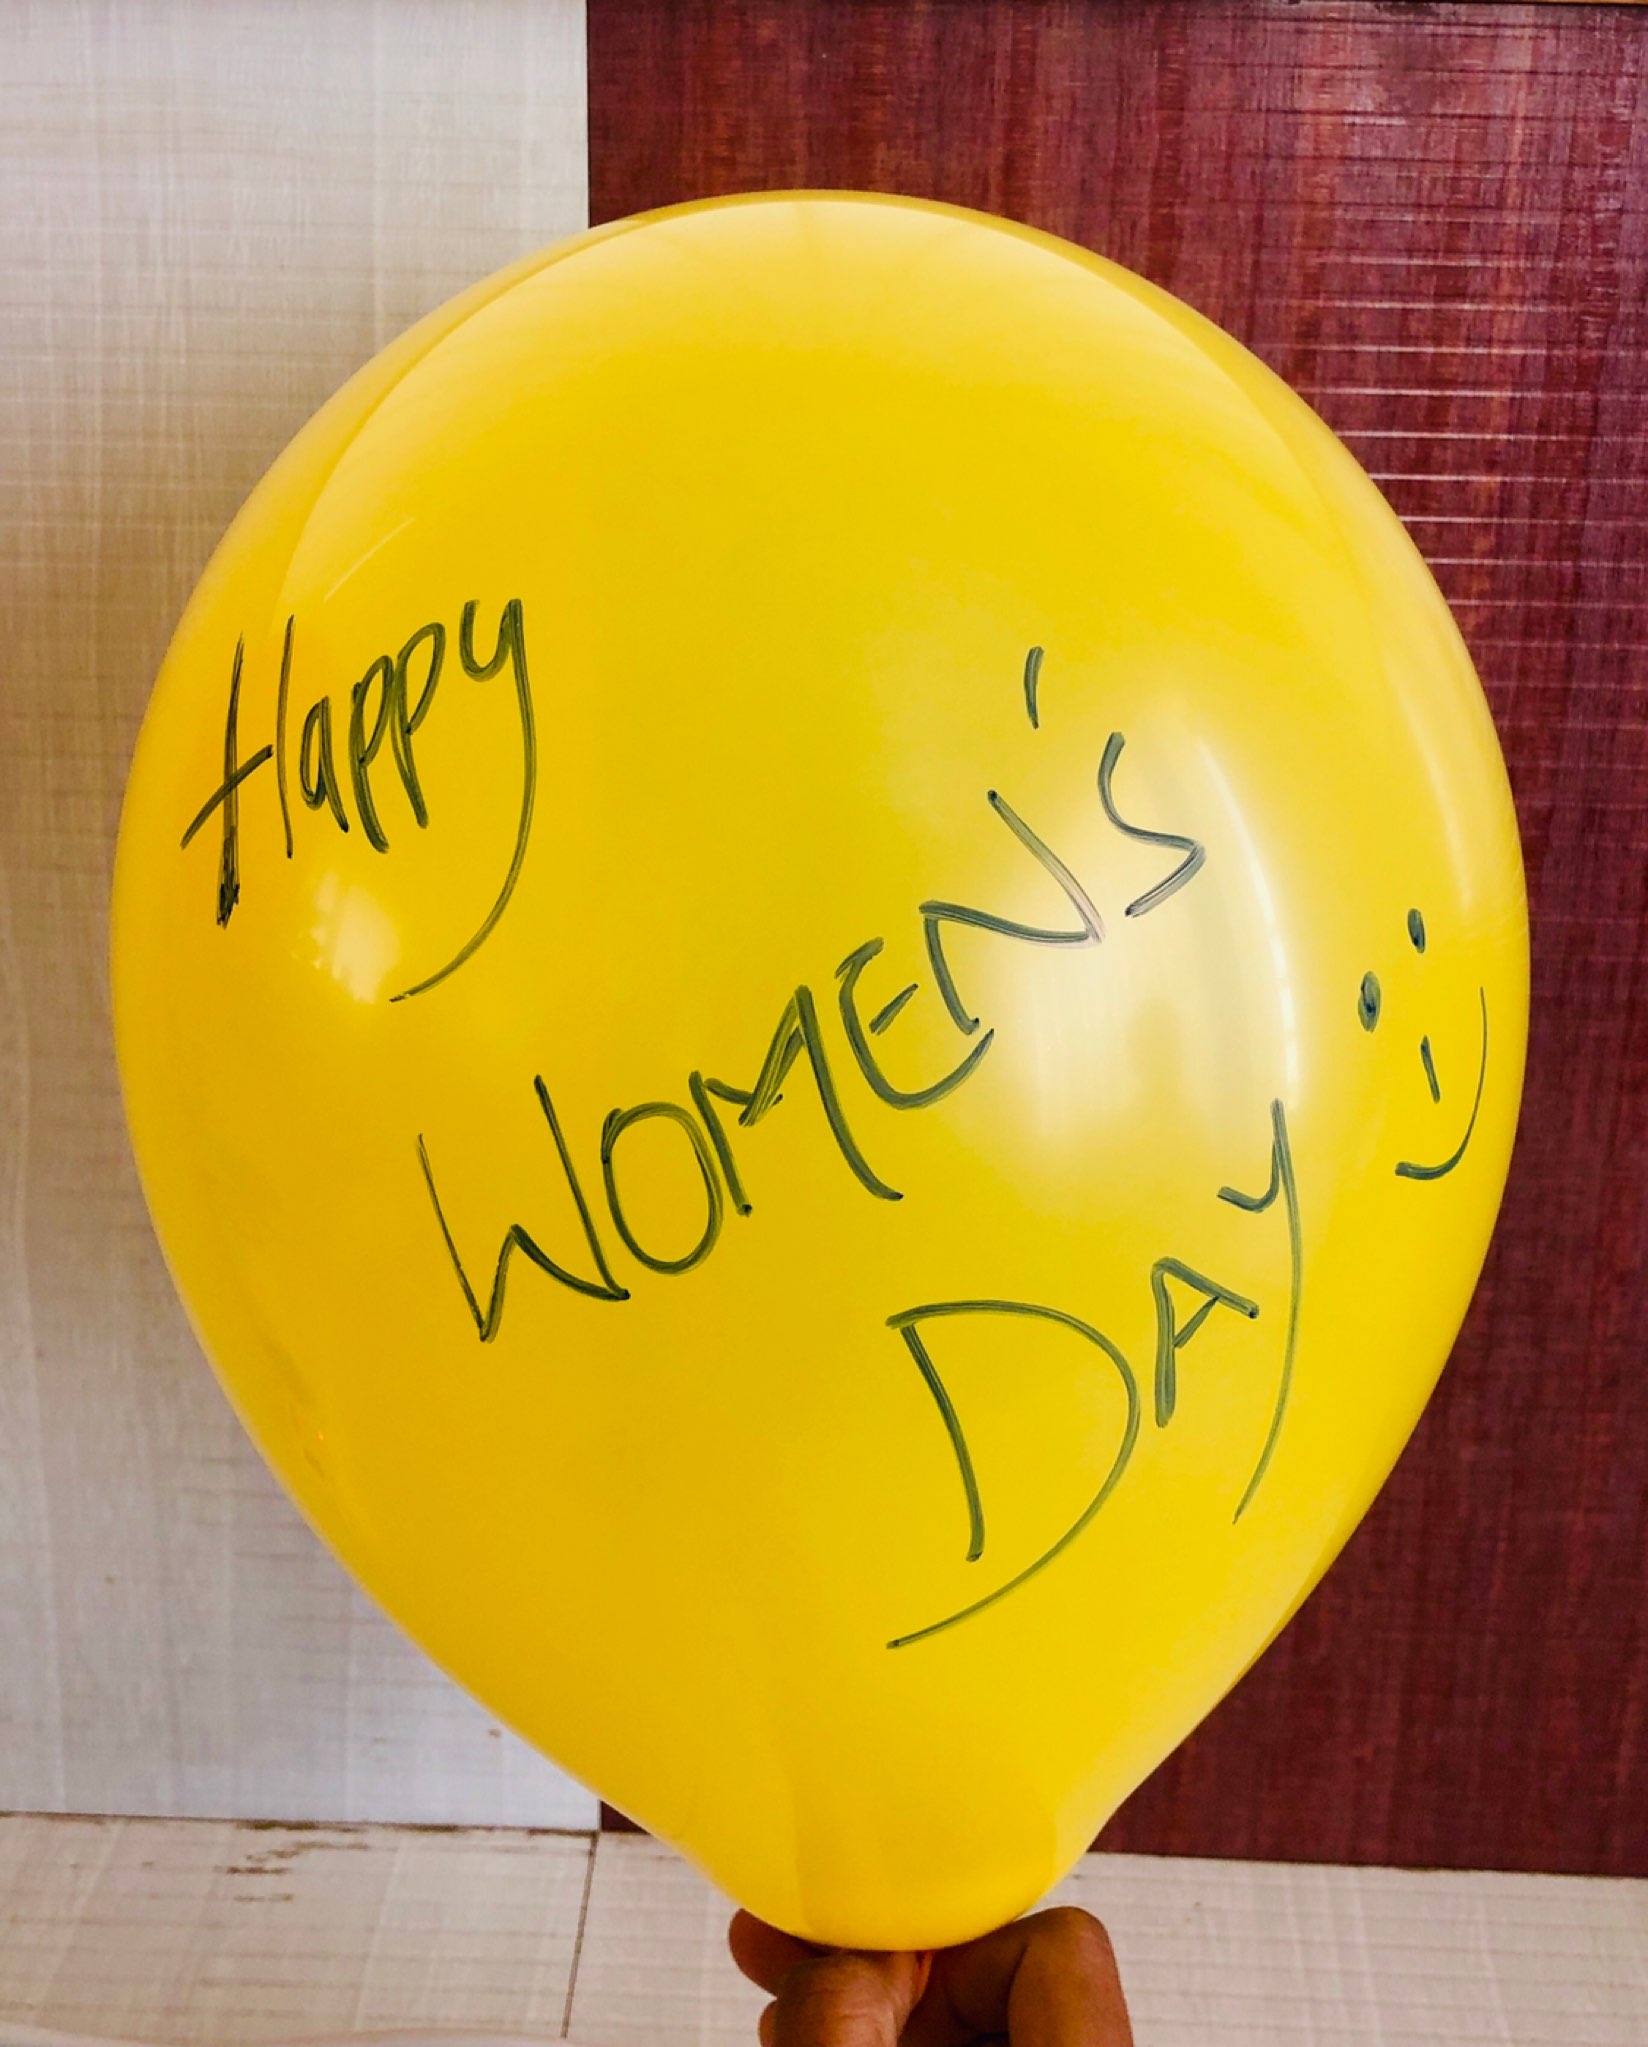 Happy
WOMEN'S
DAY :-)